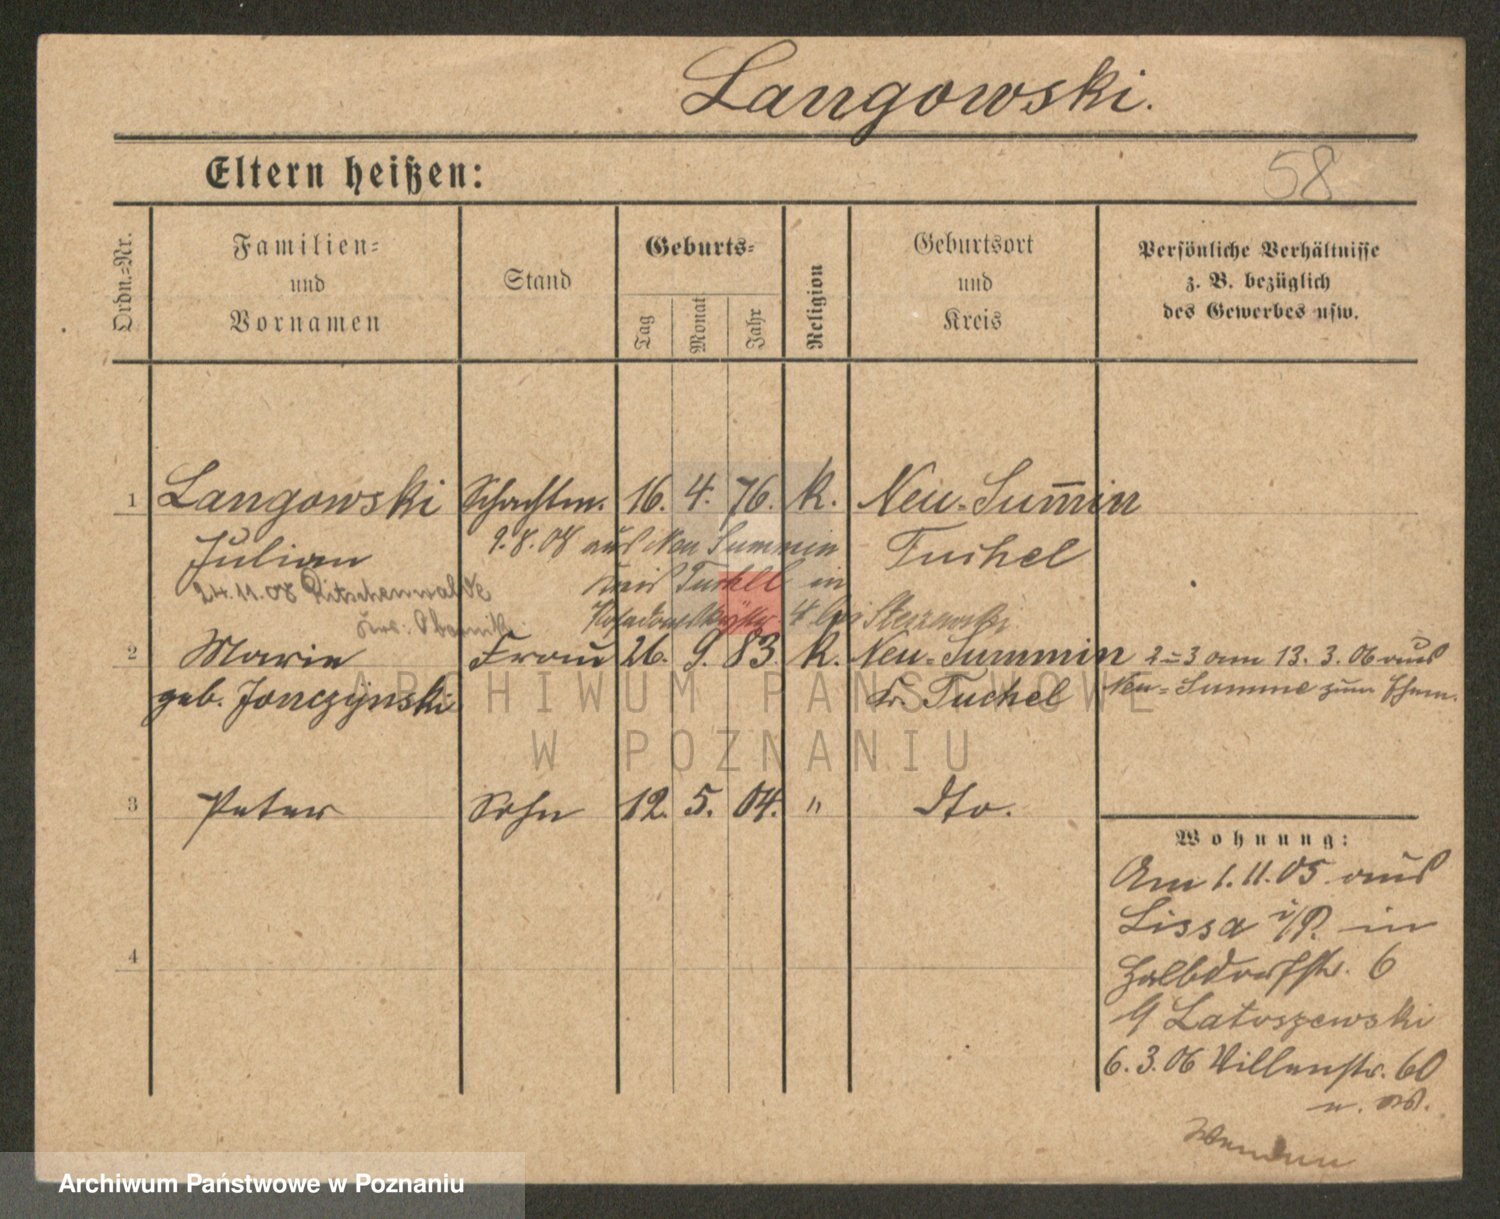 Langowski.
Eltern heißen:
58
Ordn.=Nr.
Familien=
und
Vornamen
Stand
Geburts=
Tag
Monat
Jahr
Religion
Geburtsort
und
Kreis
Persönliche Verhältnisse
z. B. bezüglich
des Gewerbes usw.
1 Langowski Schachtm. 16. 4. 76. k. Neu-Sum̅in
Julian Tuchel
9.8.08 aus Neu Summin
Kreis Tuchel in
4 bei
24.11.08 Ritschenwalde
Krs. Obornik
2 Marie Frau 26. 9. 83. k. Neu-Summin 2=3 am 13. 3. 06 aus
geb. Jonczynski Kr. Tuchel Neu=Summe zum Ehem.
3 Peter Sohn 12. 5. 04. " dto.
4
Wohnung:
Am 1.11.05 aus
Lissa i/P. in
Halbdorfstr. 6
b/ Latoszewski
6.3.06 Villenstr. 60
Wenden
ARCHIWUM PAŃSTWOWE
W POZNANIU
Archiwum Państwowe w Poznaniu